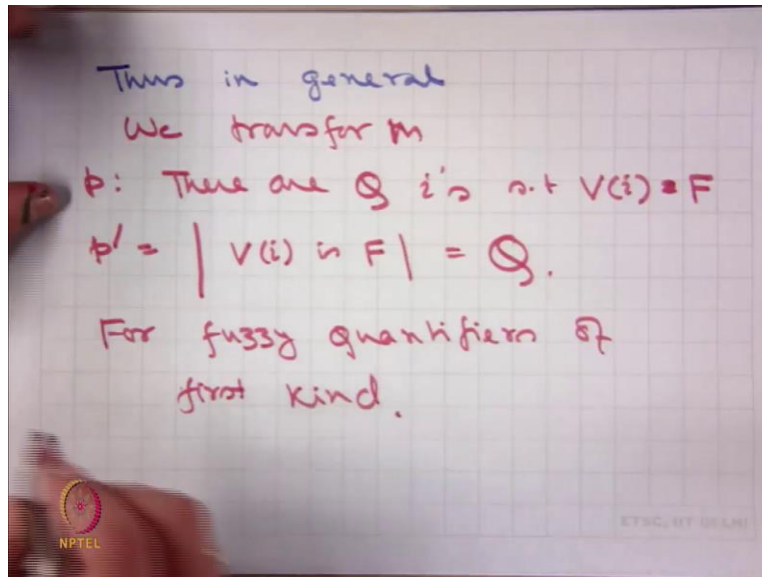 Thus in general
We transform
p: There are Q i's s.t V(i) = F
p' = | V(i) is F | = Q.
For fuzzy quantifiers of
first kind.
NPTEL
ETSC, IIT DELHI